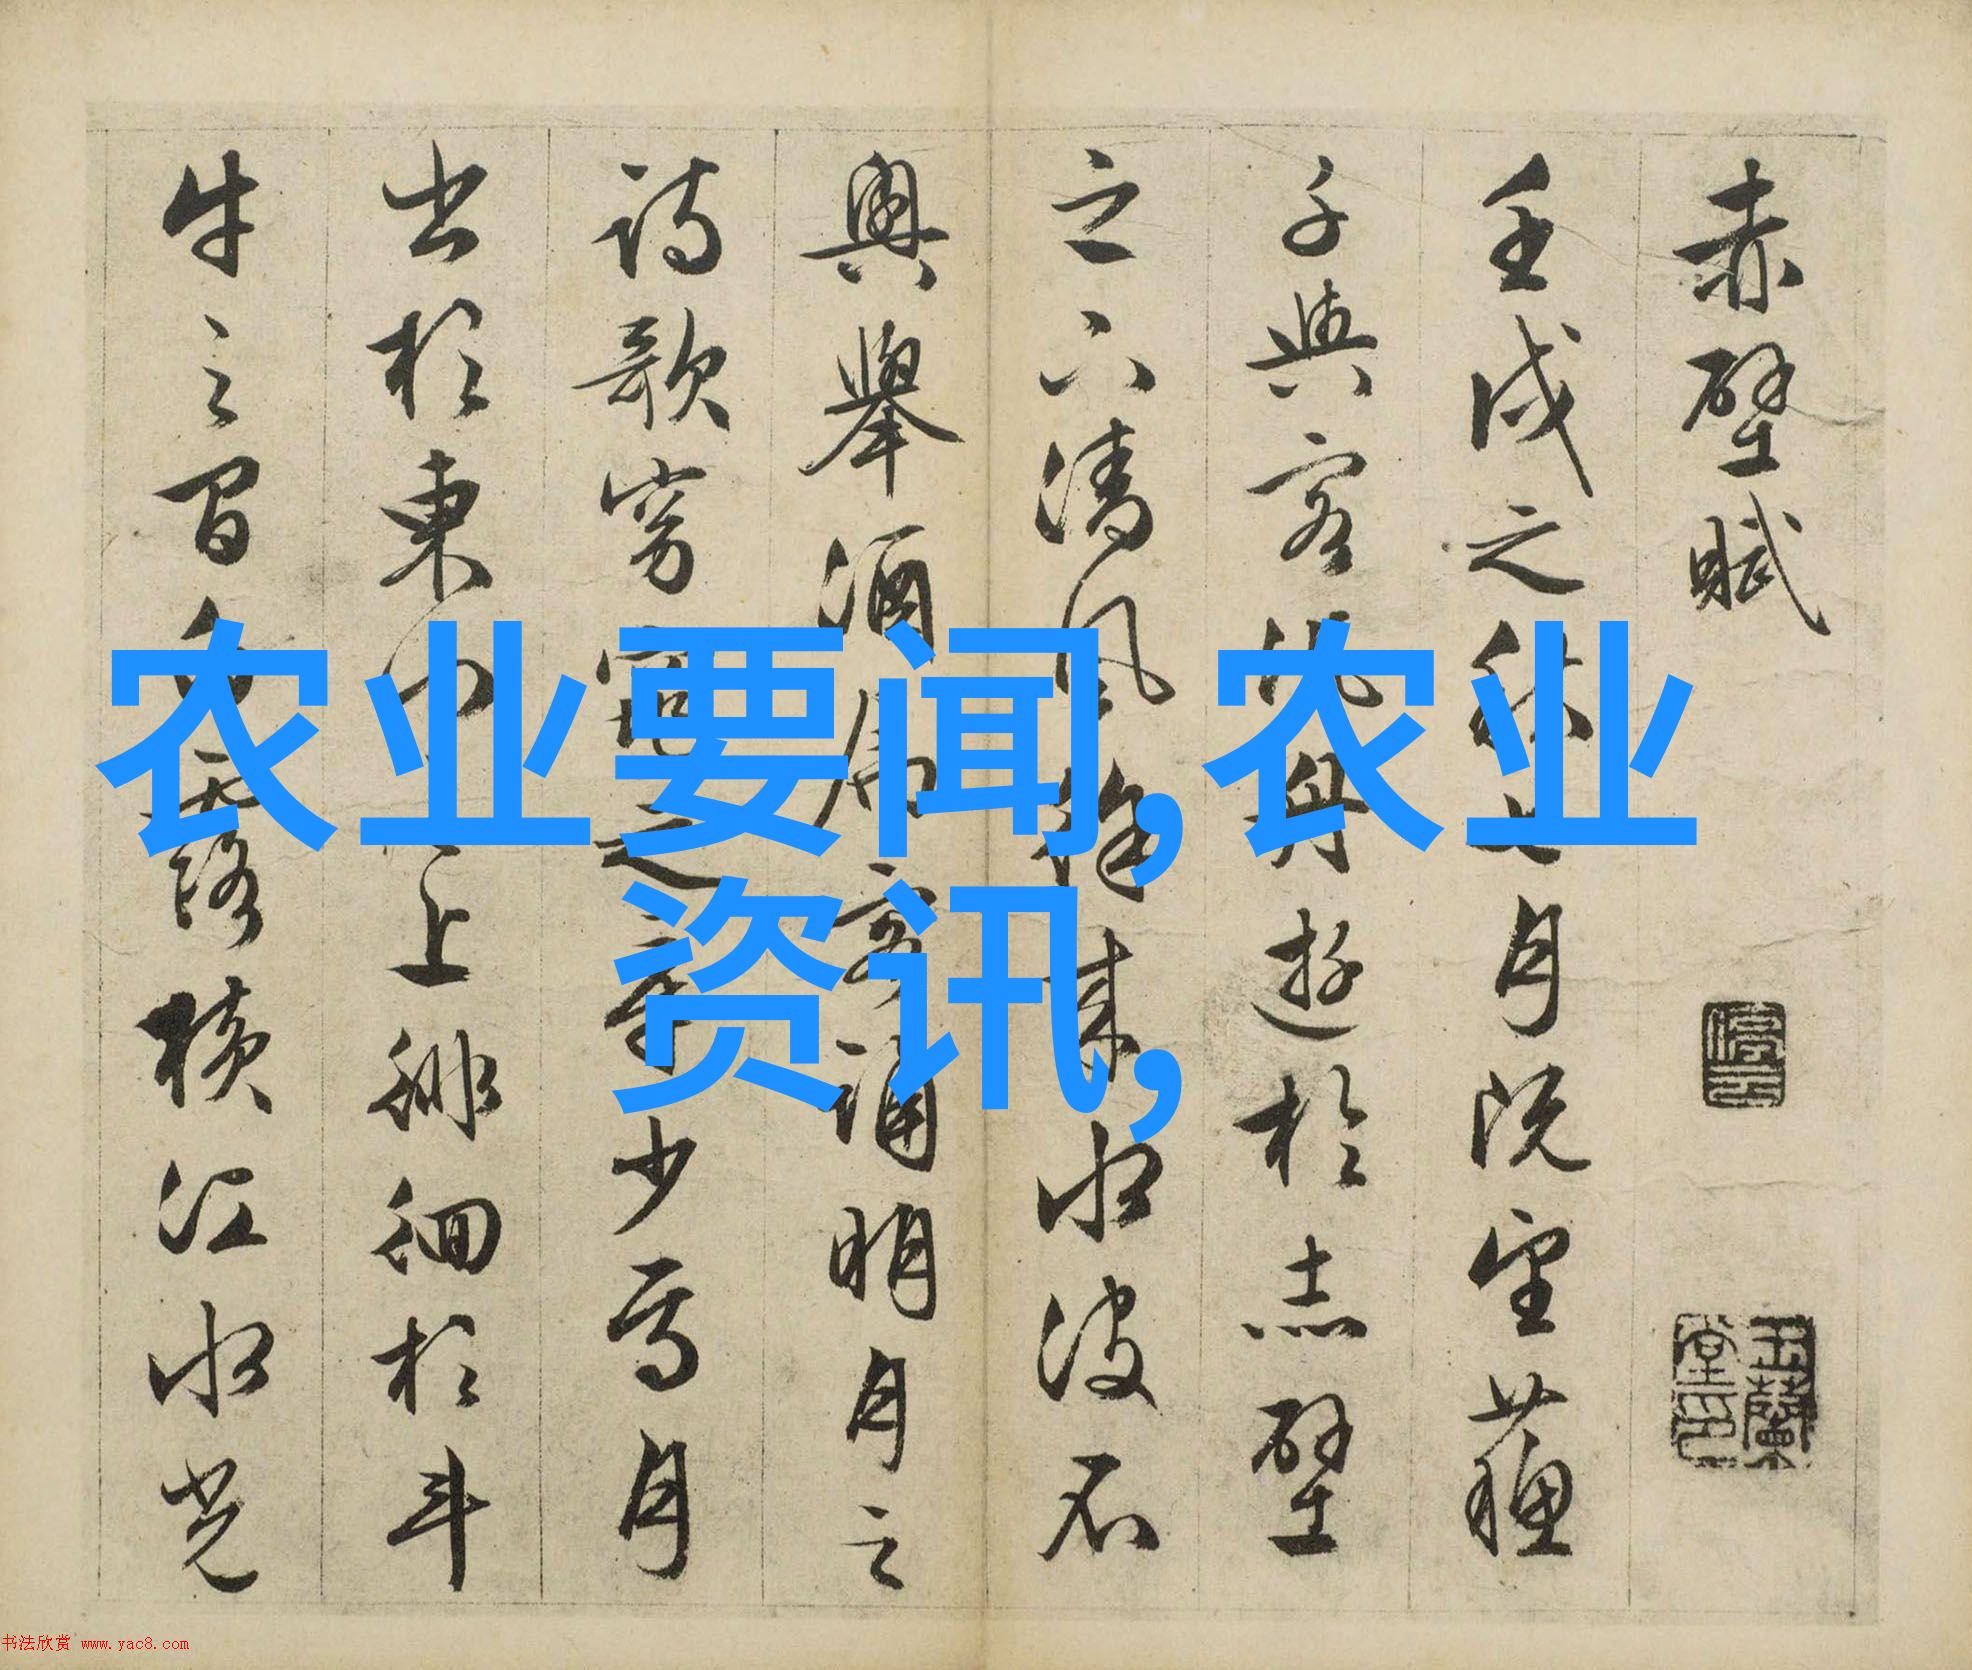 赤壁賦
停云
玉蘭堂印
壬戌之秋七月既望蘓
子與客泛舟遊於赤壁
之下清風徐来水波不
興舉酒屬客誦明月之
詩歌窈窕之章少焉月
出於東山之上徘徊於斗
牛之間白露橫江水光
农业要闻,农业
资讯,
书法欣赏 www.yac8.com